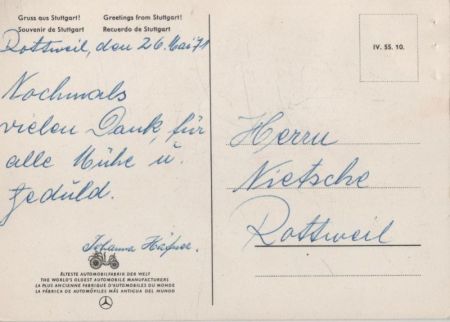 Gruss aus Stuttgart! Greetings from Stuttgart!
Souvenir de Stuttgart Recuerdo de Stuttgart
Rottweil, den 26. Mai 71
Nochmals
vielen Dank für
alle Mühe u.
Geduld.
Johanna Häfner.
ÄLTESTE AUTOMOBILFABRIK DER WELT
THE WORLD'S OLDEST AUTOMOBILE MANUFACTURERS
LA PLUS ANCIENNE FABRIQUE D'AUTOMOBILES DU MONDE
LA FÁBRICA DE AUTOMÓVILES MÁS ANTIGUA DEL MUNDO
IV. 55. 10.
Herrn
Nietsche
Rottweil